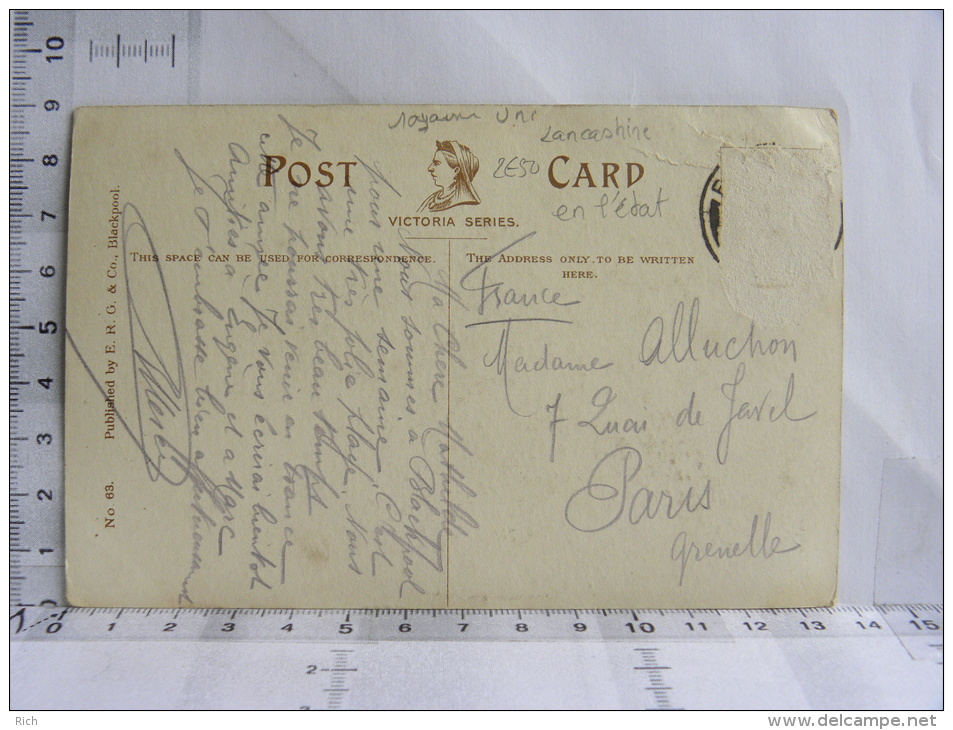 royaume Uni
Lancashire
2E50
en l'état
POST CARD
VICTORIA SERIES.
THIS SPACE CAN BE USED FOR CORRESPONDENCE.
THE ADDRESS ONLY TO BE WRITTEN
HERE.
No. 63. Published by E. R. G. & Co., Blackpool.
France
Madame Alluchon
7 Quai de Javel
Paris
Grenelle
Ma Chere
Nous sommes a Blackpool
pour une semaine, C'est
une tres jolie plage. Nous
avons tres beau temps
Je ne pourrai venir en France
cette année Je vous écrirai bientot
Amitiés a Eugene et a Marc
Je t'embrasse bien affectueusement
10
9
8
7
6
5
4
3
2
1
0
0 1 2 3 4 5 6 7 8 9 10 11 12 13 14 15
2
3
Rich
delcampe.net